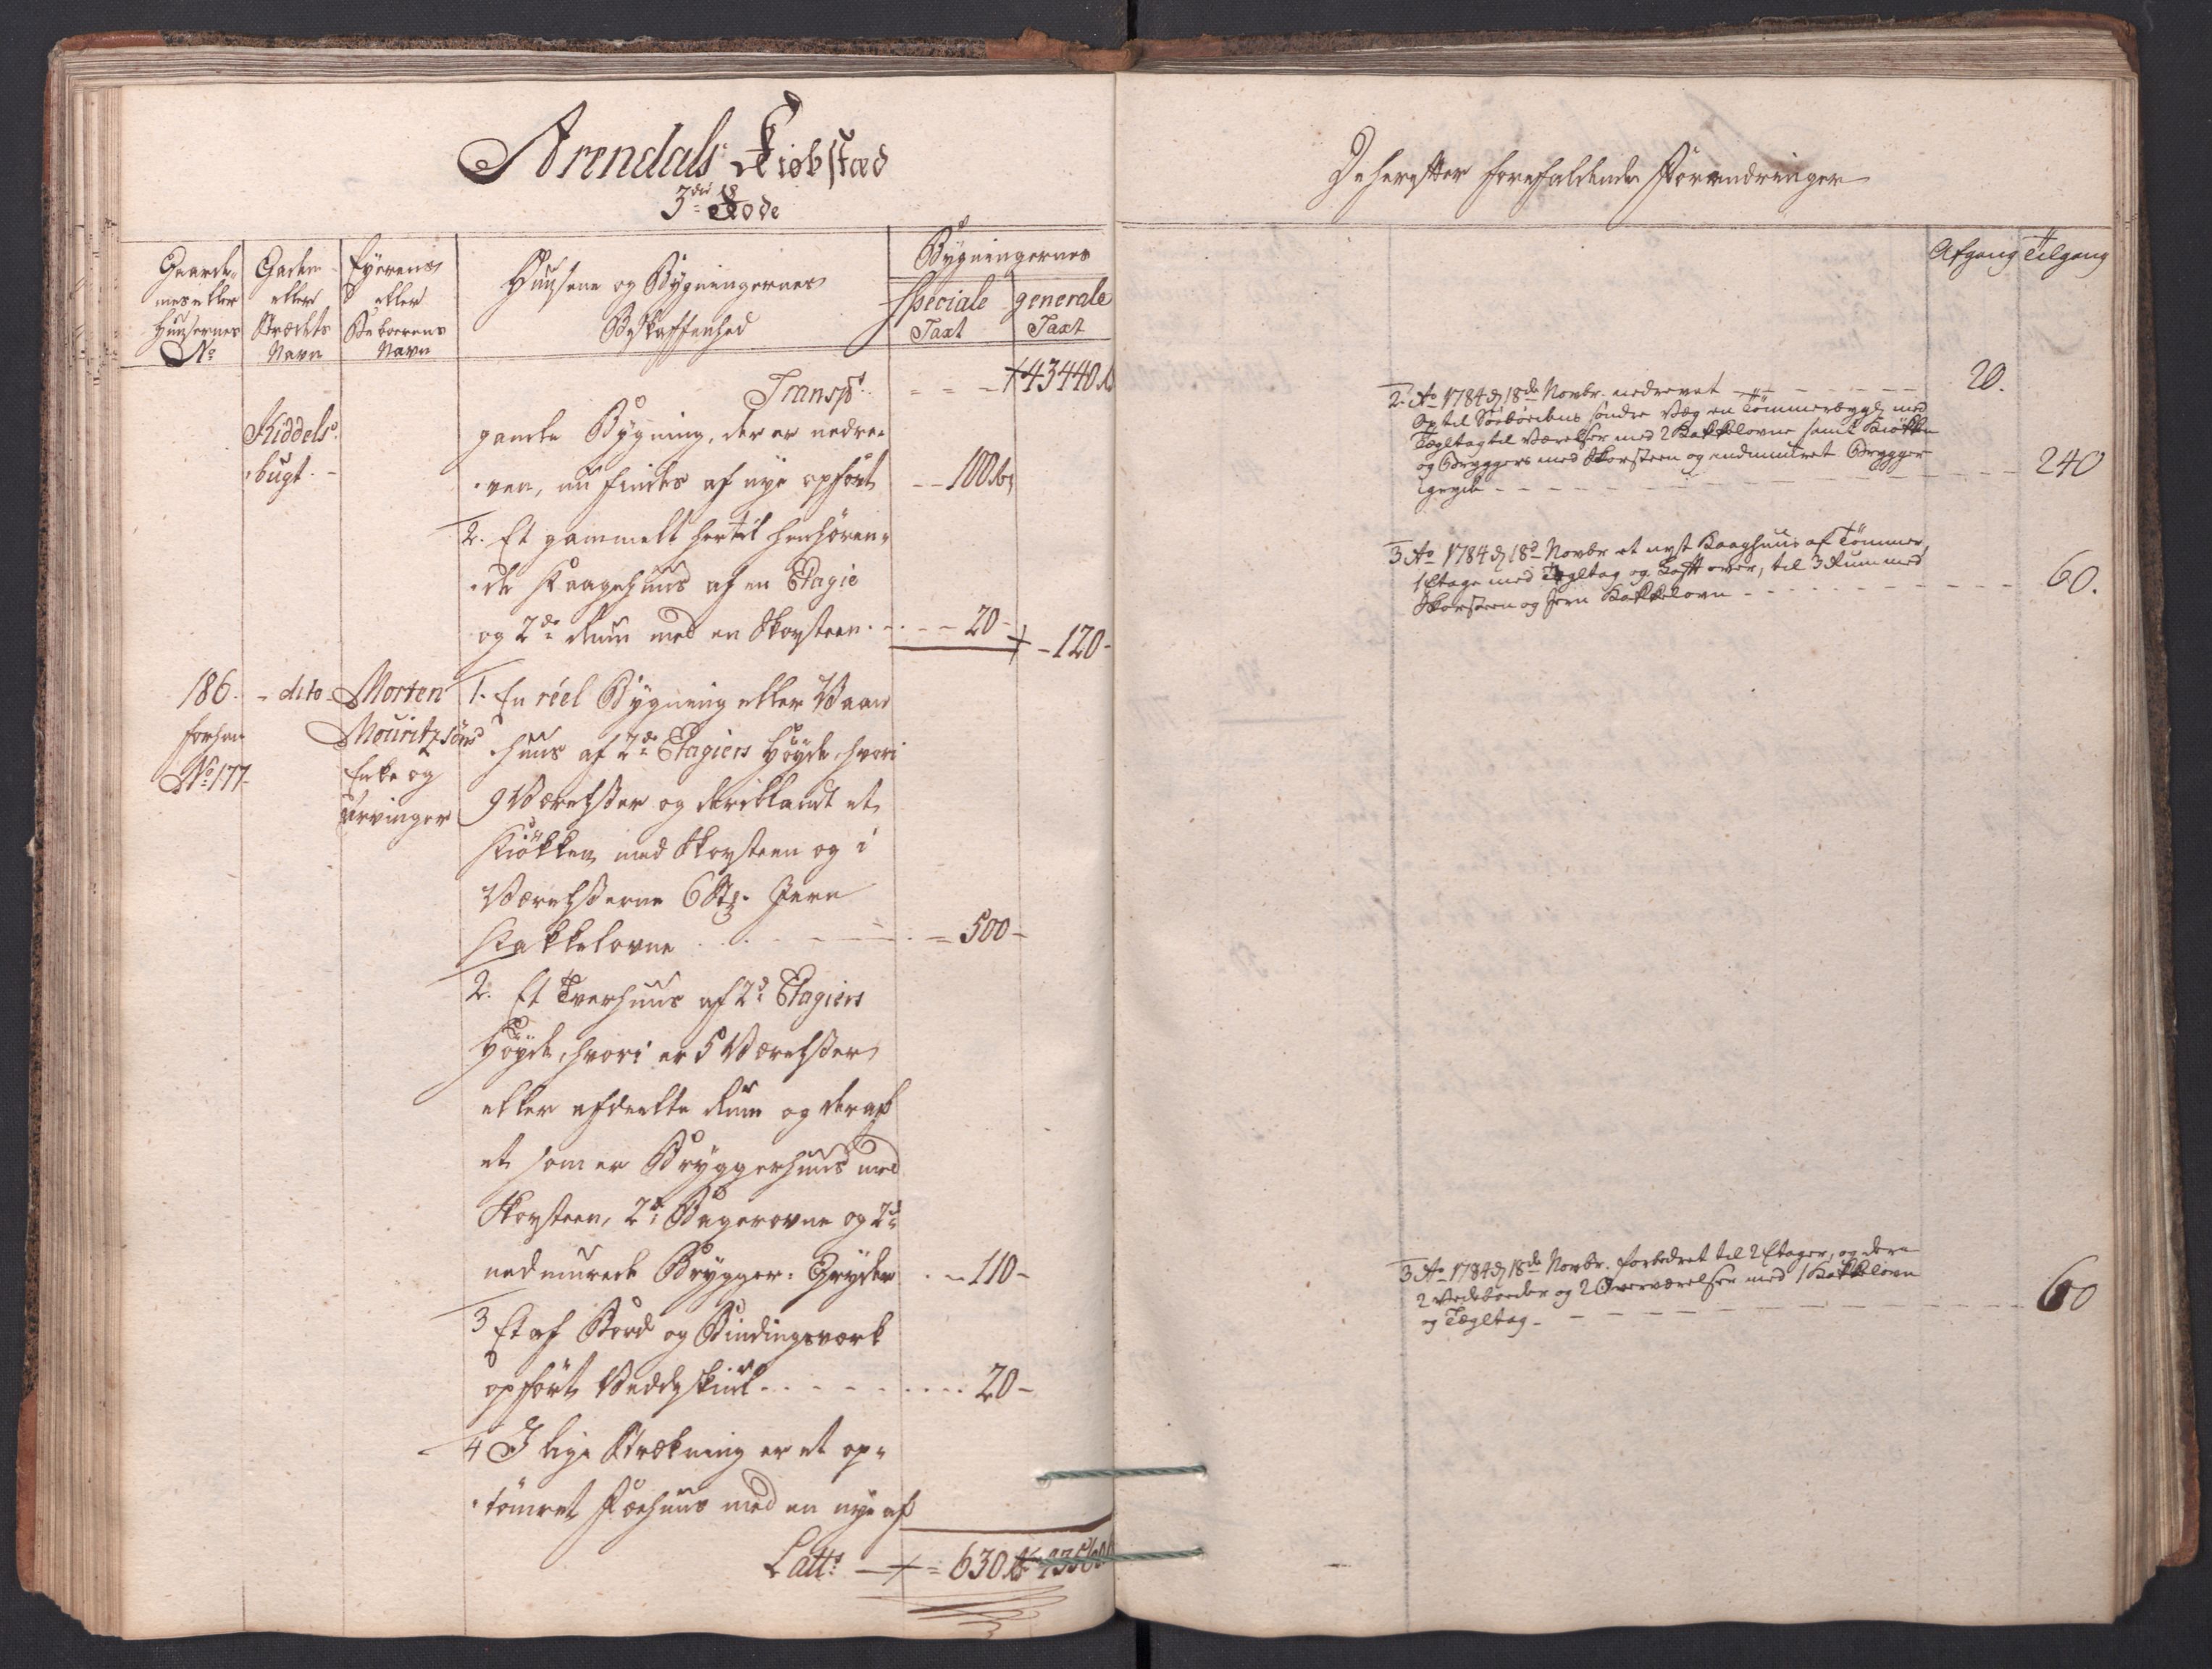 Arendals Kiøbstæd
3die Rode
Gaarde-
nes eller
Huusernes
No
Gadens
eller
Strædets
Navn
Eyerens
eller
Beboerens
Navn
Huusene og Bygningernes
Beskaffenhed
Bygningernes
speciale
Taxt
generale
Taxt
Transpt = = - 43440
Kiddels
bugt. -
gamle Bygning, der er nedre-
ven, nu findes af nye opført - - 100
2. Et gammelt hertil henhøren-
de Kaagehuus af en Etagie
og 2de Rum med en Skorsteen. - - 20 -
- 120 -
186. - dito - Morten
forhen Mouritzsøns
No 177 - Enke og
Arvinger
1. En réel Bygning eller Vaan
huus af 2de Etagiers Høyde, hvori
9 Værelsser og deriblandt et
Kiøkken med Skorsteen og i
Værelsserne 6 St. Jern
Kakkelovne - - - = 500 -
2. Et Tverhuus af 2de Etagiers
Høyde, hvori er 5 Værelsser
eller afdeelte Rum og deraf
et som er Bryggerhuus med
Skorsteen, 2de Bagerovne og 2de
nedmurede Brygger-Gryder - - 110 -
3 Et af Bord og Bindingsværk
opført Vedskiul - - - - - 20 -
4 I lige Strekning er et op-
tømret Fæehuus med en nye af
Latt. - = 630 43560
Dehereffter forefaldende Forandringer
Afgang Tilgang
2. Ao 1784 d 18de Novbr. nedrevet - - - - - 20.
Optil Søeboedens søndre Væg en Tømmerbygn. med
Tegltag til Værelser med 2 Kakkelovne samt Kiøkken
og Bryggers med Skorsteen og indmuret Brygger
Gryde - - - - - 240
3. Ao 1784 d 18de Novbr et nyt Kaaghuus af Tømmer,
1 Etage med Tegltag og Loft over, til 3 Rum med
Skorsteen og Jern Kakkelovn - - - - - 60.
3 Ao 1784 d 18de Novbr. forbedret til 2 Etager, og dere
2 Vedeboeder og 2 Overværelser med 1 Kakkelovn
og Tegltag - - - - - 60